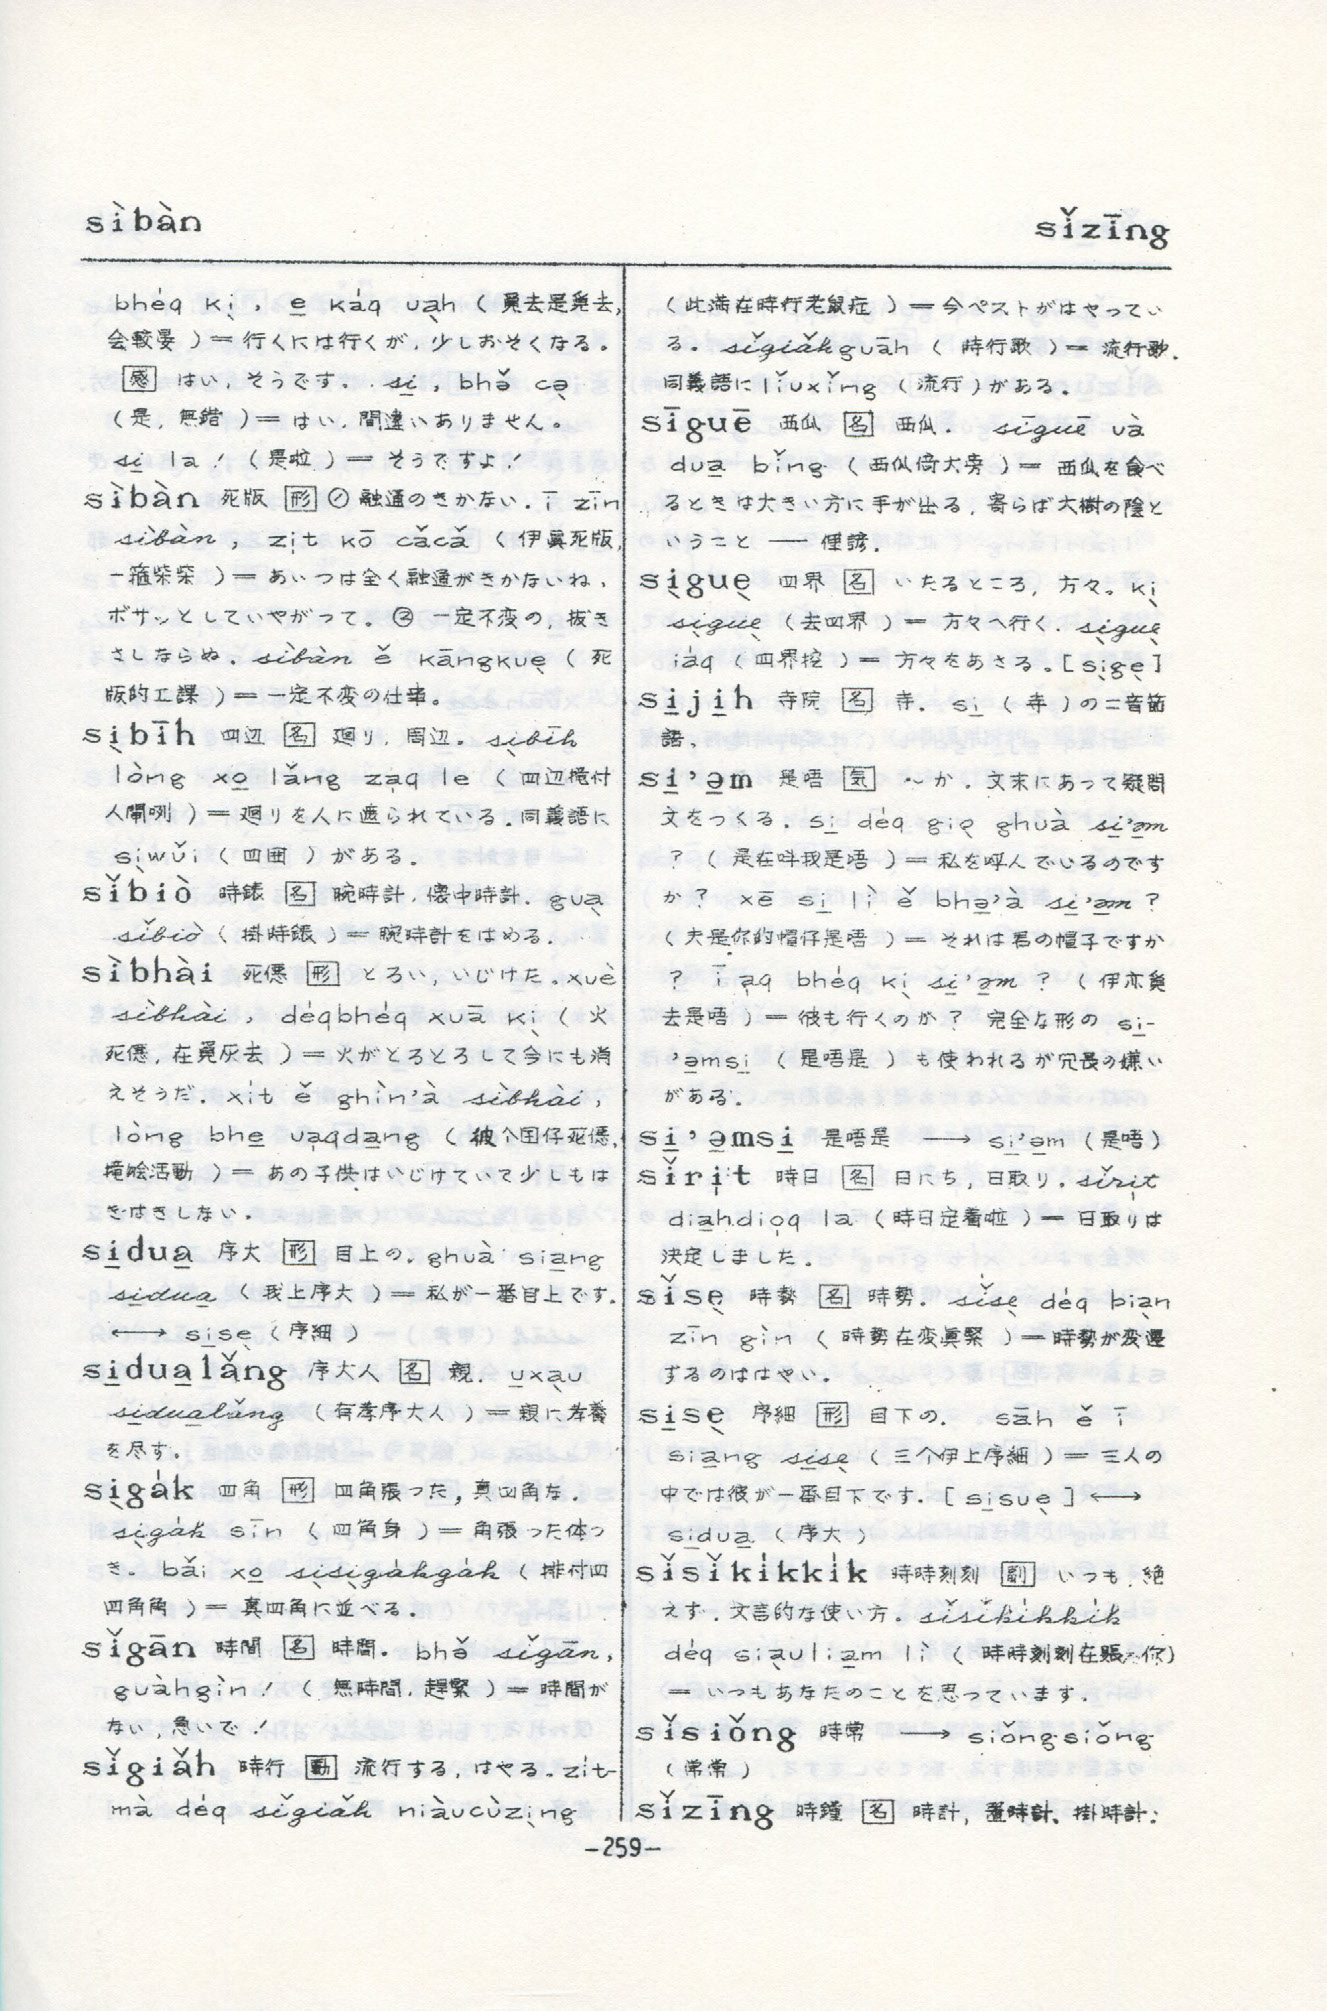 sìbàn
sǐzīng
bhéq kị, e̲ káq ua̲h (覓去是覓去,
会較晏)＝行くには行くが,少しおそくなる。
感 はい,そうです。si̲ bhə̌ cə̣
(是,無錯)＝はい,間違いありません。
si̲ la! (是啦)＝そうですよ!
sìbàn 死版 形 ① 融通のきかない. ī zīn
sìbàn, zịt kō cǎcǎ (伊眞死版,
一箍柴柴)＝あいつは全く融通がきかないね,
ボサッとしていやがって。② 一定不変の,抜き
さしならぬ。sìbàn ě kāngkuẹ (死
版的工課)＝一定不変の仕事。
sịbīh 四辺 名 廻り,周辺。sịbīh
lòng xo̲ lǎng zaq le (四辺攏付
人閘咧)＝廻りを人に遮られている.同義語に
sịwǔi (四囲)がある。
sǐbiò 時錶 名 腕時計,懐中時計. guạ
sǐbiò (掛時錶)＝腕時計をはめる.
sìbhài 死僫 形 とろい,いじけた。xuè
sìbhài, déqbhéq xuā kị (火
死僫,在覓灰去)＝火がとろとろして今にも消
えそうだ.xít ě ghìn'à sìbhài,
lòng bhe̲ uạqda̲ng (彼个囝仔死僫,
攏𣍐活動)＝あの子供はいじけていて少しもは
きはきしない.
si̲dua̲ 序大 形 目上の. ghuà sia̲ng
si̲dua̲ (我上序大)＝私が一番目上です.
←→ si̲sẹ (序細)
si̲dua̲lǎng 序大人 名 親. u̲xạu
si̲dua̲lǎng (有孝序大人)＝親に孝養
を尽す.
sịgák 四角 形 四角張った,真四角な.
sịgák sīn (四角身)＝角張った体つ
き. bǎi xo̲ sịsịgákgák (排付四
四角角)＝真四角に並べる.
sǐgān 時間 名 時間. bhə̌ sǐgān,
guàhgìn! (無時間,趕緊)＝時間が
ない,急いで!
sǐgiǎh 時行 動 流行する,はやる. zít-
mà déq sǐgiǎh niàucùzịng
(此満在時行老鼠症)＝今ペストがはやってい
る. sǐgiǎhguāh (時行歌)＝流行歌.
同義語に lǐuxǐng (流行)がある.
sīguē 西瓜 名 西瓜. sīguē uà
dua̲ bǐng (西瓜倚大旁)＝西瓜を食べ
るときは大きい方に手が出る,寄らば大樹の陰と
いうこと — 俚諺.
sịguẹ 四界 名 いたるところ,方々。kị
sịguẹ (去四界)＝方々へ行く. sịguẹ
iáq (四界挖)＝方々をあさる.[sịgẹ]
si̲jịh 寺院 名 寺. si̲ (寺)の二音節
語.
si̲'ə̲m 是唔 気 〜か.文末にあって疑問
文をつくる. si̲ déq giọ ghuà si̲'ə̲m
? (是在叫我是唔)＝私を呼んでいるのです
か? xē si̲ lì ě bhə̲'à si̲'ə̲m ?
(夫是你的帽仔是唔)＝それは君の帽子ですか
? ī ạq bhéq kị si̲'ə̲m ? (伊亦覓
去是唔)＝彼も行くのか? 完全な形の si̲-
'ə̲msi̲ (是唔是)も使われるが冗長の嫌い
がある.
si̲'ə̲msi̲ 是唔是 ⟶ si̲'ə̲m (是唔)
sǐrịt 時日 名 日にち,日取り. sǐrịt
dia̲hdiọq la (時日定着啦)＝日取りは
決定しました.
sǐsẹ 時勢 名 時勢. sǐsẹ déq biạn
zīn gìn (時勢在変眞緊)＝時勢が変遷
するのははやい.
si̲sẹ 序細 形 目下の. sāh ě ī
sia̲ng si̲sẹ (三个伊上序細)＝三人の
中では彼が一番目下です.[si̲suẹ]←→
si̲dua̲ (序大)
sǐsǐkíkkík 時時刻刻 副 いつも,絶
えず.文言的な使い方. sǐsǐkíkkík
déq siạulia̲m lì (時時刻刻在賬你)
＝いつもあなたのことを思っています.
sǐsiǒng 時常 ⟶ siǒngsiǒng
(常常)
sǐzīng 時鐘 名 時計,置時計、掛時計.
-259-